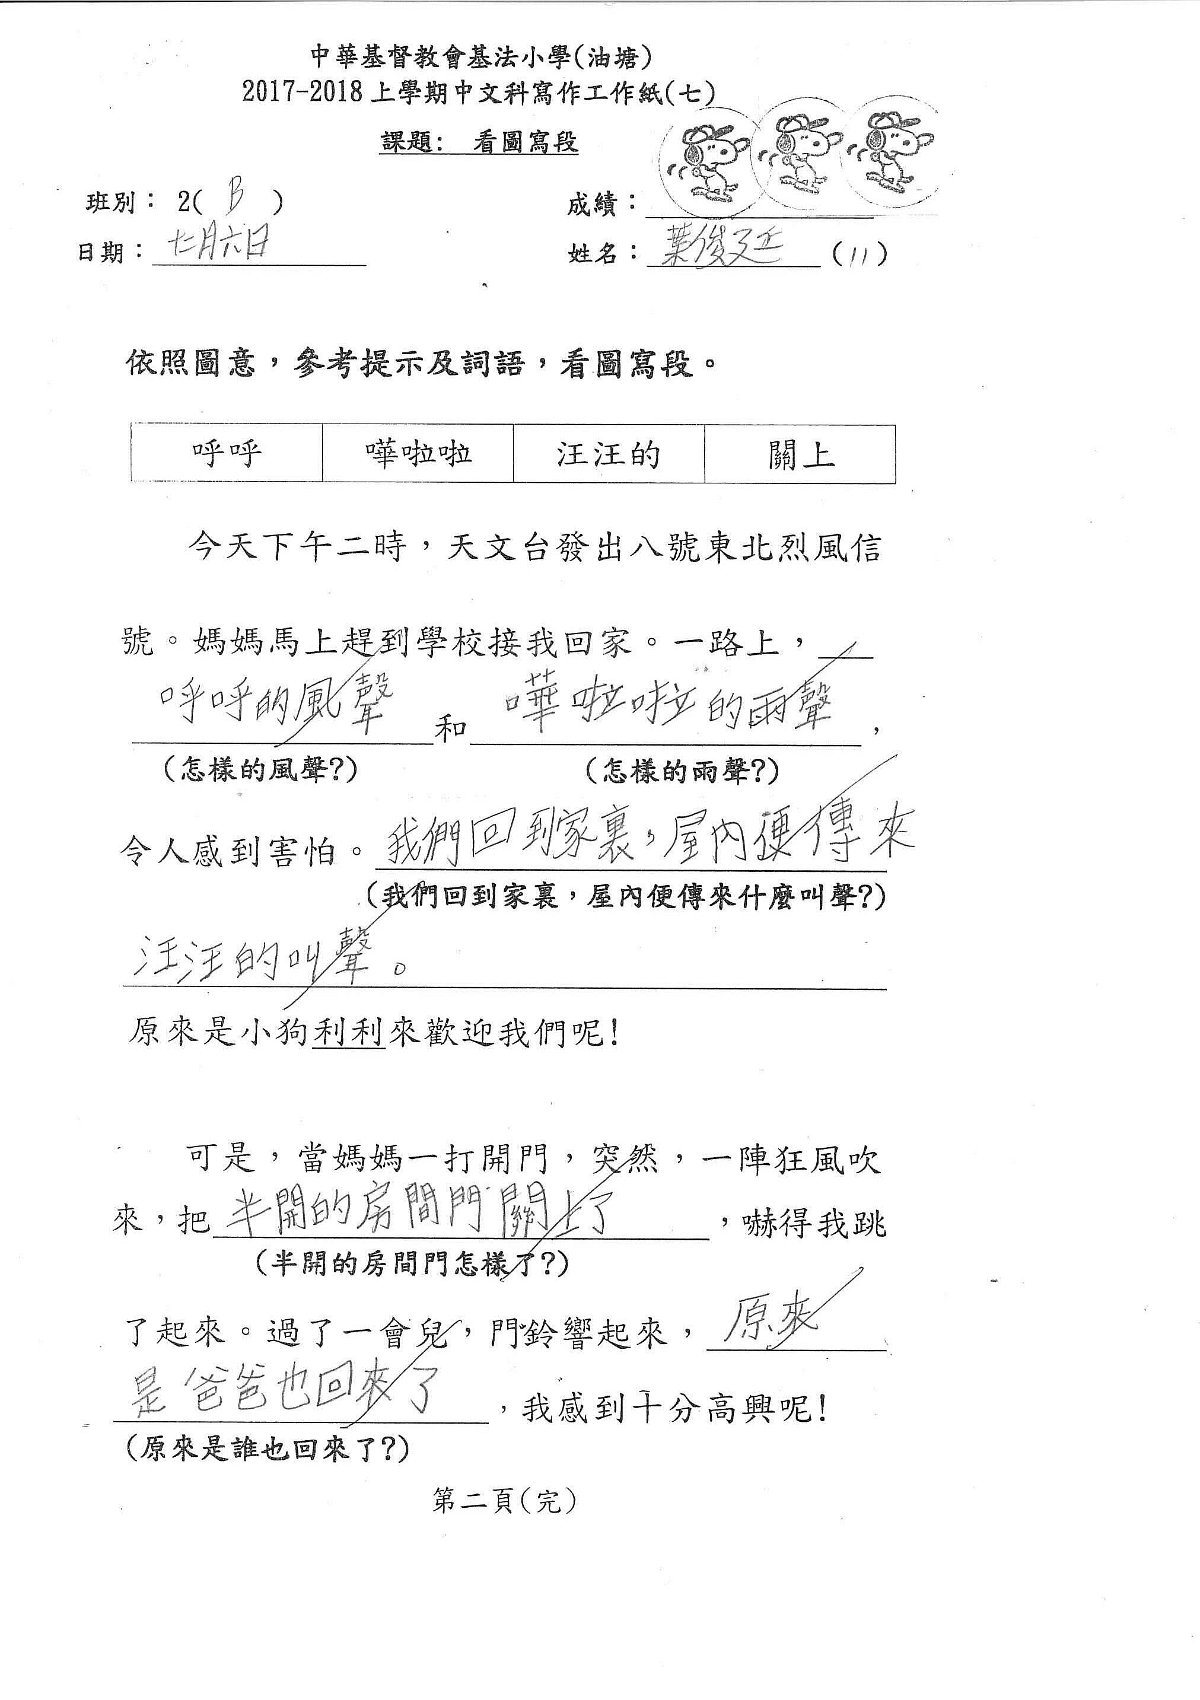 中華基督教會基法小學(油塘)
2017-2018上學期中文科寫作工作紙(七)
課題: 看圖寫段
班別: 2( B )
成績:
日期: 十二月六日
姓名: 葉俊廷 (11)
依照圖意,參考提示及詞語,看圖寫段。
呼呼 嘩啦啦 汪汪的 關上
今天下午二時,天文台發出八號東北烈風信
號。媽媽馬上趕到學校接我回家。一路上,
呼呼的風聲和嘩啦啦的雨聲,
(怎樣的風聲?) (怎樣的雨聲?)
令人感到害怕。我們回到家裏,屋內便傳來
(我們回到家裏,屋內便傳來什麼叫聲?)
汪汪的叫聲。
原來是小狗利利來歡迎我們呢!
可是,當媽媽一打開門,突然,一陣狂風吹
來,把半開的房間門關上了,嚇得我跳
(半開的房間門怎樣了?)
了起來。過了一會兒,門鈴響起來,原來
是爸爸也回來了,我感到十分高興呢!
(原來是誰也回來了?)
第二頁(完)